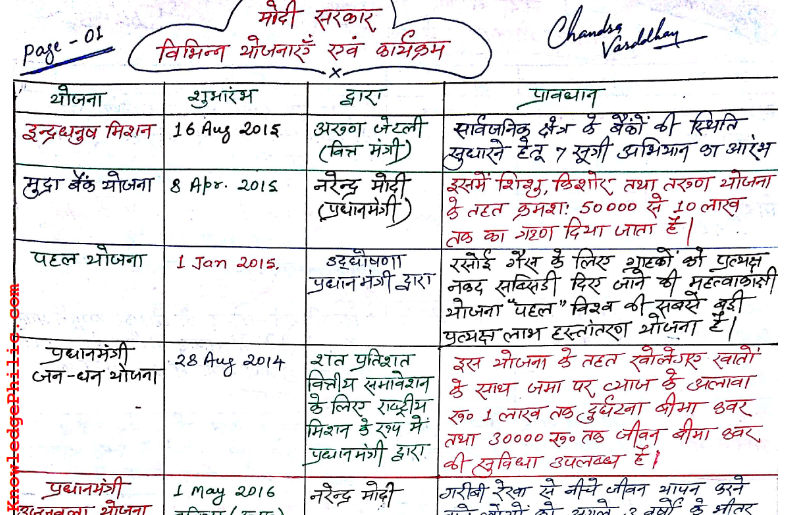 Page - 01
मोदी सरकार
विभिन्न योजनाएँ एवं कार्यक्रम
Chandra
योजना शुभारंभ द्वारा प्रावधान
इन्द्रधनुष मिशन 16 Aug 2015 अरुण जेटली सार्वजनिक क्षेत्र के बैंकों की स्थिति
(वित्त मंत्री) सुधारने हेतू 7 सूत्री अभियान का आरंभ
मुद्रा बैंक योजना 8 Apr. 2015 नरेन्द्र मोदी इसमें शिशु, किशोर, तथा तरुण योजना
(प्रधानमंत्री) के तहत क्रमशः 50000 से 10 लाख
तक का ऋण दिया जाता है।
पहल योजना 1 Jan 2015. उद्घोषणा रसोई गैस के लिए ग्राहकों को प्रत्यक्ष
प्रधानमंत्री द्वारा नकद सब्सिडी दिए जाने की महत्वाकांक्षी
योजना "पहल" विश्व की सबसे बड़ी
प्रत्यक्ष लाभ हस्तांतरण योजना है।
प्रधानमंत्री 28 Aug 2014 शत प्रतिशत इस योजना के तहत खोलेगए खातों
जन-धन योजना वित्तीय समावेशन के साथ जमा पर ब्याज के अलावा
के लिए राष्ट्रीय रु० 1 लाख तक दुर्घटना बीमा कवर
मिशन के रूप में तथा 30000 रु० तक जीवन बीमा कवर
प्रधानमंत्री द्वारा की सुविधा उपलब्ध है।
प्रधानमंत्री 1 May 2016 नरेन्द्र मोदी गरीबी रेखा से नीचे जीवन यापन करने
KnowledgePhilic.com